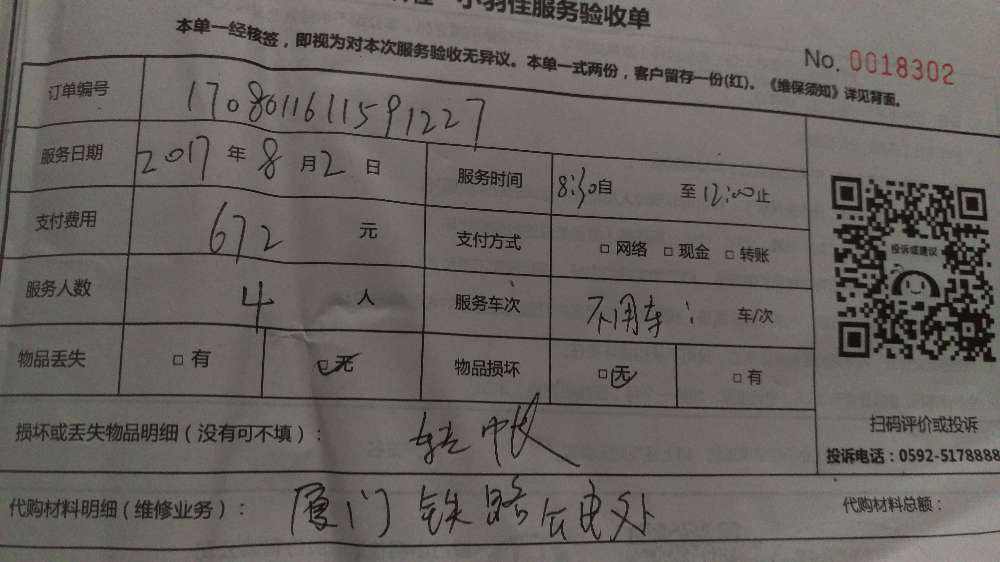 小羽佳服务验收单
本单一经核签，即视为对本次服务验收无异议。本单一式两份，客户留存一份(红)。《维保须知》详见背面。
No. 0018302
订单编号 17080116111591227
服务日期 2017 年 8 月 2 日 服务时间 8:30自 至 12:00止
支付费用 672 元 支付方式 □ 网络 □ 现金 □ 转账
服务人数 4 人 服务车次 不用车 车/次
物品丢失 □ 有 □ 无 物品损坏 □ 无 □ 有
投诉或建议
扫码评价或投诉
投诉电话：0592-5178888
损坏或丢失物品明细（没有可不填）：
代购材料明细（维修业务）： 厦门铁路公安处 代购材料总额：